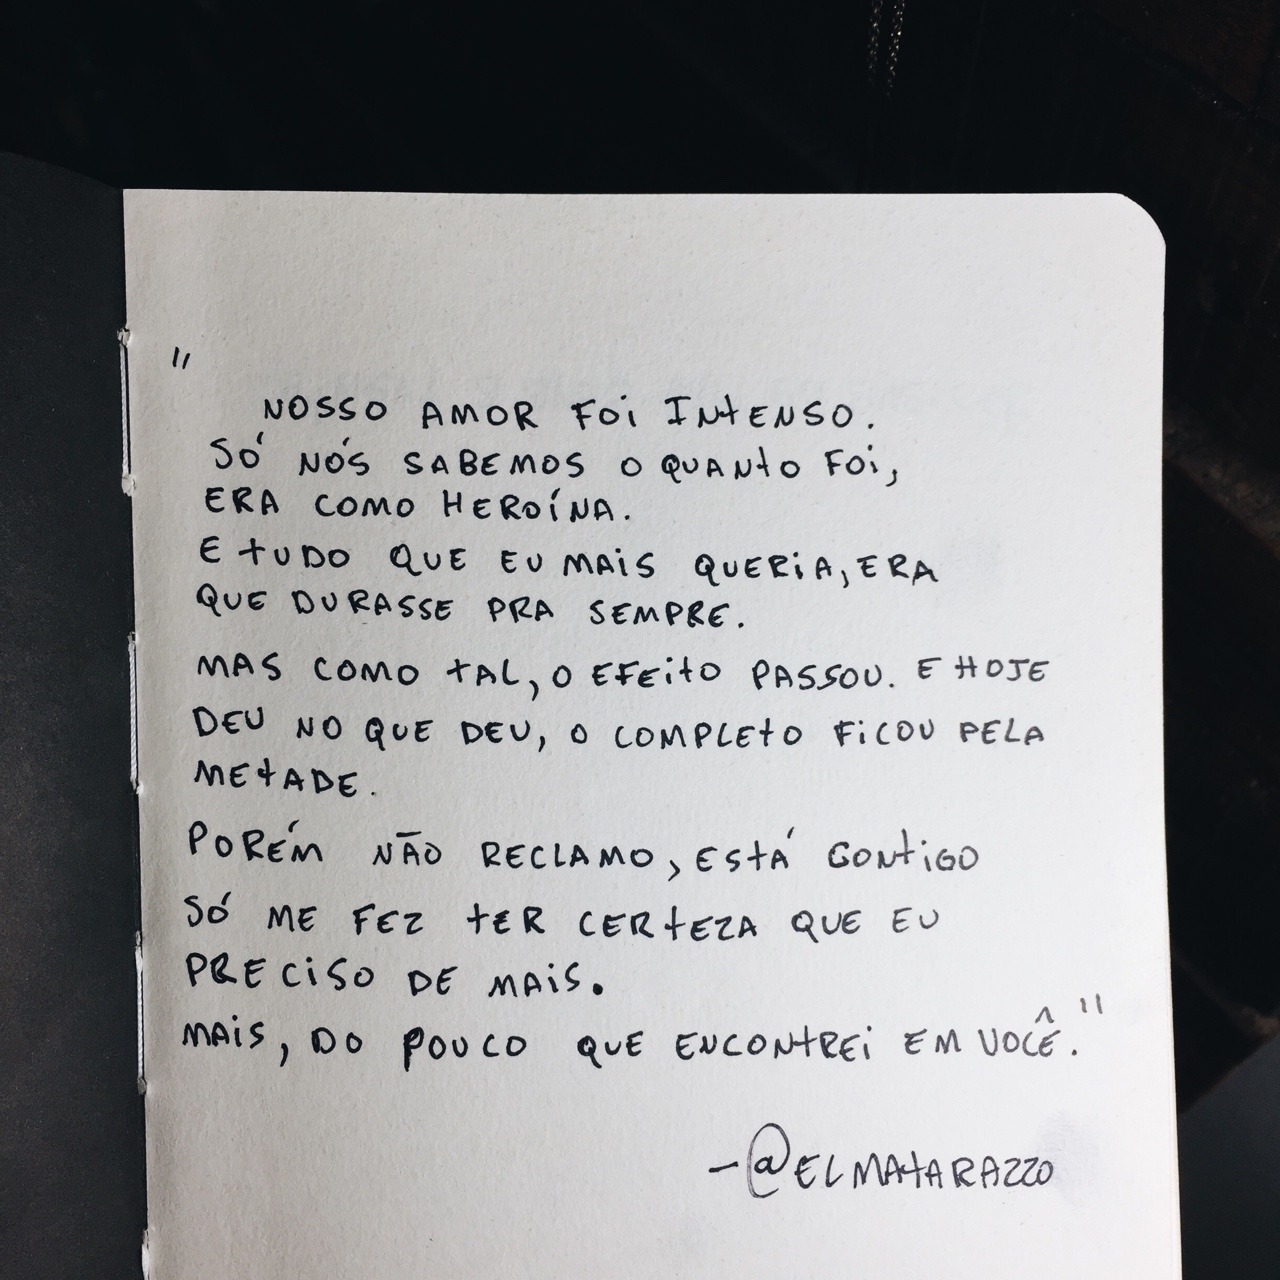 "
NOSSO AMOR FOI INTENSO.
SÓ NÓS SABEMOS O QUANTO FOI,
ERA COMO HEROÍNA.
E TUDO QUE EU MAIS QUERIA, ERA
QUE DURASSE PRA SEMPRE.
MAS COMO TAL, O EFEITO PASSOU. E HOJE
DEU NO QUE DEU, O COMPLETO FICOU PELA
METADE.
PORÉM NÃO RECLAMO, ESTÁ CONTIGO
SÓ ME FEZ TER CERTEZA QUE EU
PRECISO DE MAIS.
MAIS, DO POUCO QUE ENCONTREI EM VOCÊ."
-@ELMATARAZZO